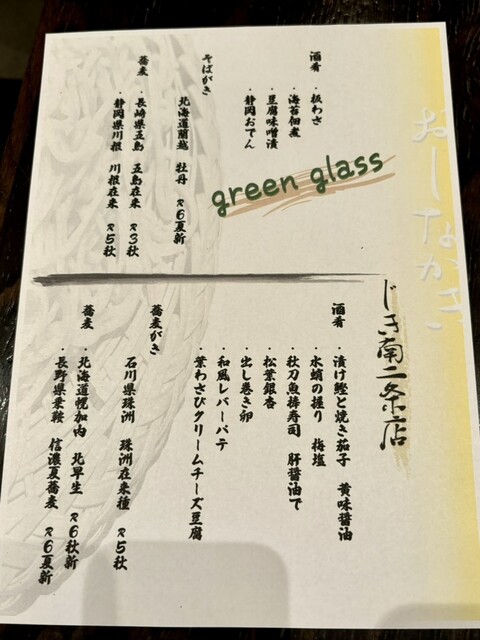 おしながき
green glass
酒肴
・板わさ
・海苔佃煮
・豆腐味噌漬
・静岡おでん
そばがき
北海道蘭越 牡丹 R6夏新
蕎麦
・長崎県五島 五島在来 R3秋
・静岡県川根 川根在来 R5秋
じき南二条店
酒肴
・漬け鰹と焼き茄子 黄味醤油
・水蛸の握り 梅塩
・秋刀魚棒寿司 肝醤油で
・松葉銀杏
・出し巻き卵
・和風レバーパテ
・葉わさびクリームチーズ豆腐
蕎麦がき
石川県珠洲 珠洲在来種 R5秋
蕎麦
・北海道幌加内 北早生 R6秋新
・長野県乗鞍 信濃夏蕎麦 R6夏新